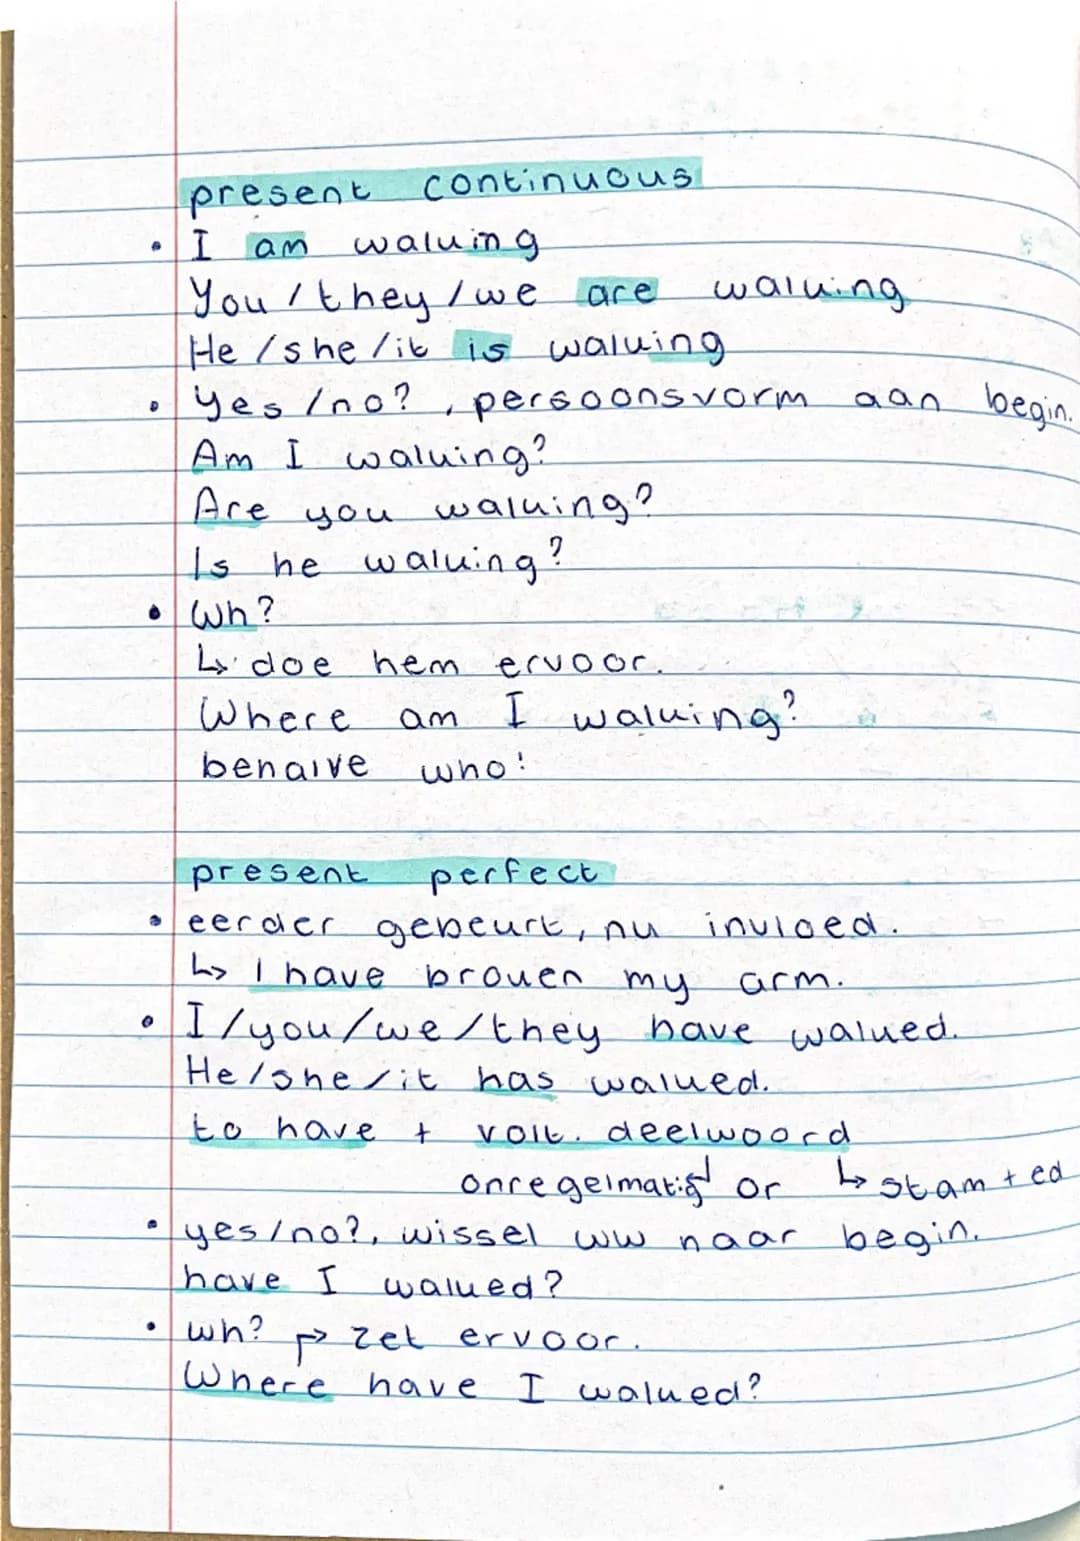 present continuous
• I am walking
You / they / we are walking
He / she / it is walking
• yes / no? , persoonsvorm aan begin.
Am I walking?
Are you walking?
Is he walking?
• Wh?
↳ doe hem ervoor.
Where am I walking?
behalve who!
present perfect
• eerder gebeurt, nu invloed.
↳ I have broken my arm.
• I / you / we / they have walked.
He / she / it has walked.
to have + volt. deelwoord
onregelmatig or ↳ stam + ed
• yes / no?, wissel ww naar begin.
have I walked?
• wh? ↱ zet ervoor.
Where have I walked?